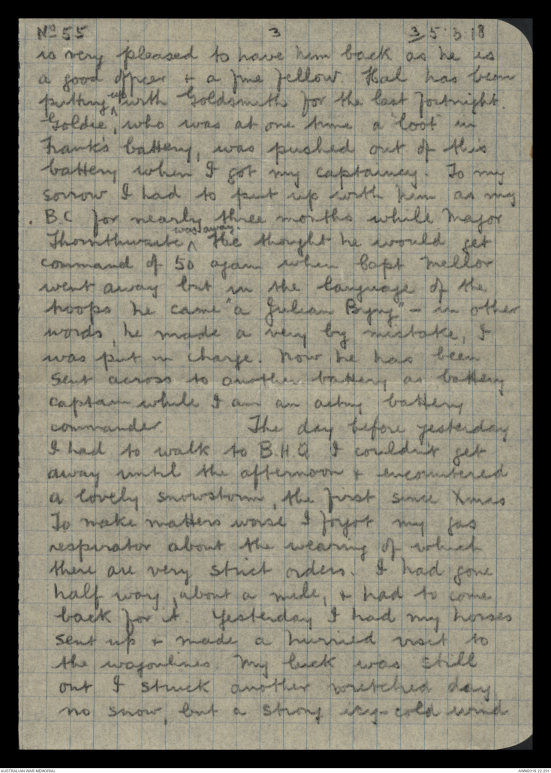 No 55 3 3 5.3.18
is very pleased to have him back as he is
a good officer & a fine fellow. Hal has been
putting up with Goldsmith for the last fortnight.
"Goldie", who was at one time a "loot" in
Frank's battery, was pushed out of this
battery when I got my captaincy. To my
sorrow I had to put up with him as my
B.C. for nearly three months while Major
Thornthwaite was away. He thought he would get
command of 50 again when Capt Mellor
went away but in the language of the
troops he came "a Julian Byng" - in other
words, he made a very big mistake, I
was put in charge. Now he has been
sent across to another battery as battery
captain while I am an acting battery
commander The day before yesterday
I had to walk to B.H.Q. I couldn't get
away until the afternoon & encountered
a lovely snowstorm, the first since Xmas
To make matters worse I forgot my gas
respirator about the wearing of which
there are very strict orders. I had gone
half way, about a mile, & had to come
back for it Yesterday I had my horses
sent up & made a hurried visit to
the wagonlines. My luck was still
out I struck another wretched day
no snow, but a strong icy-cold wind
AUSTRALIAN WAR MEMORIAL